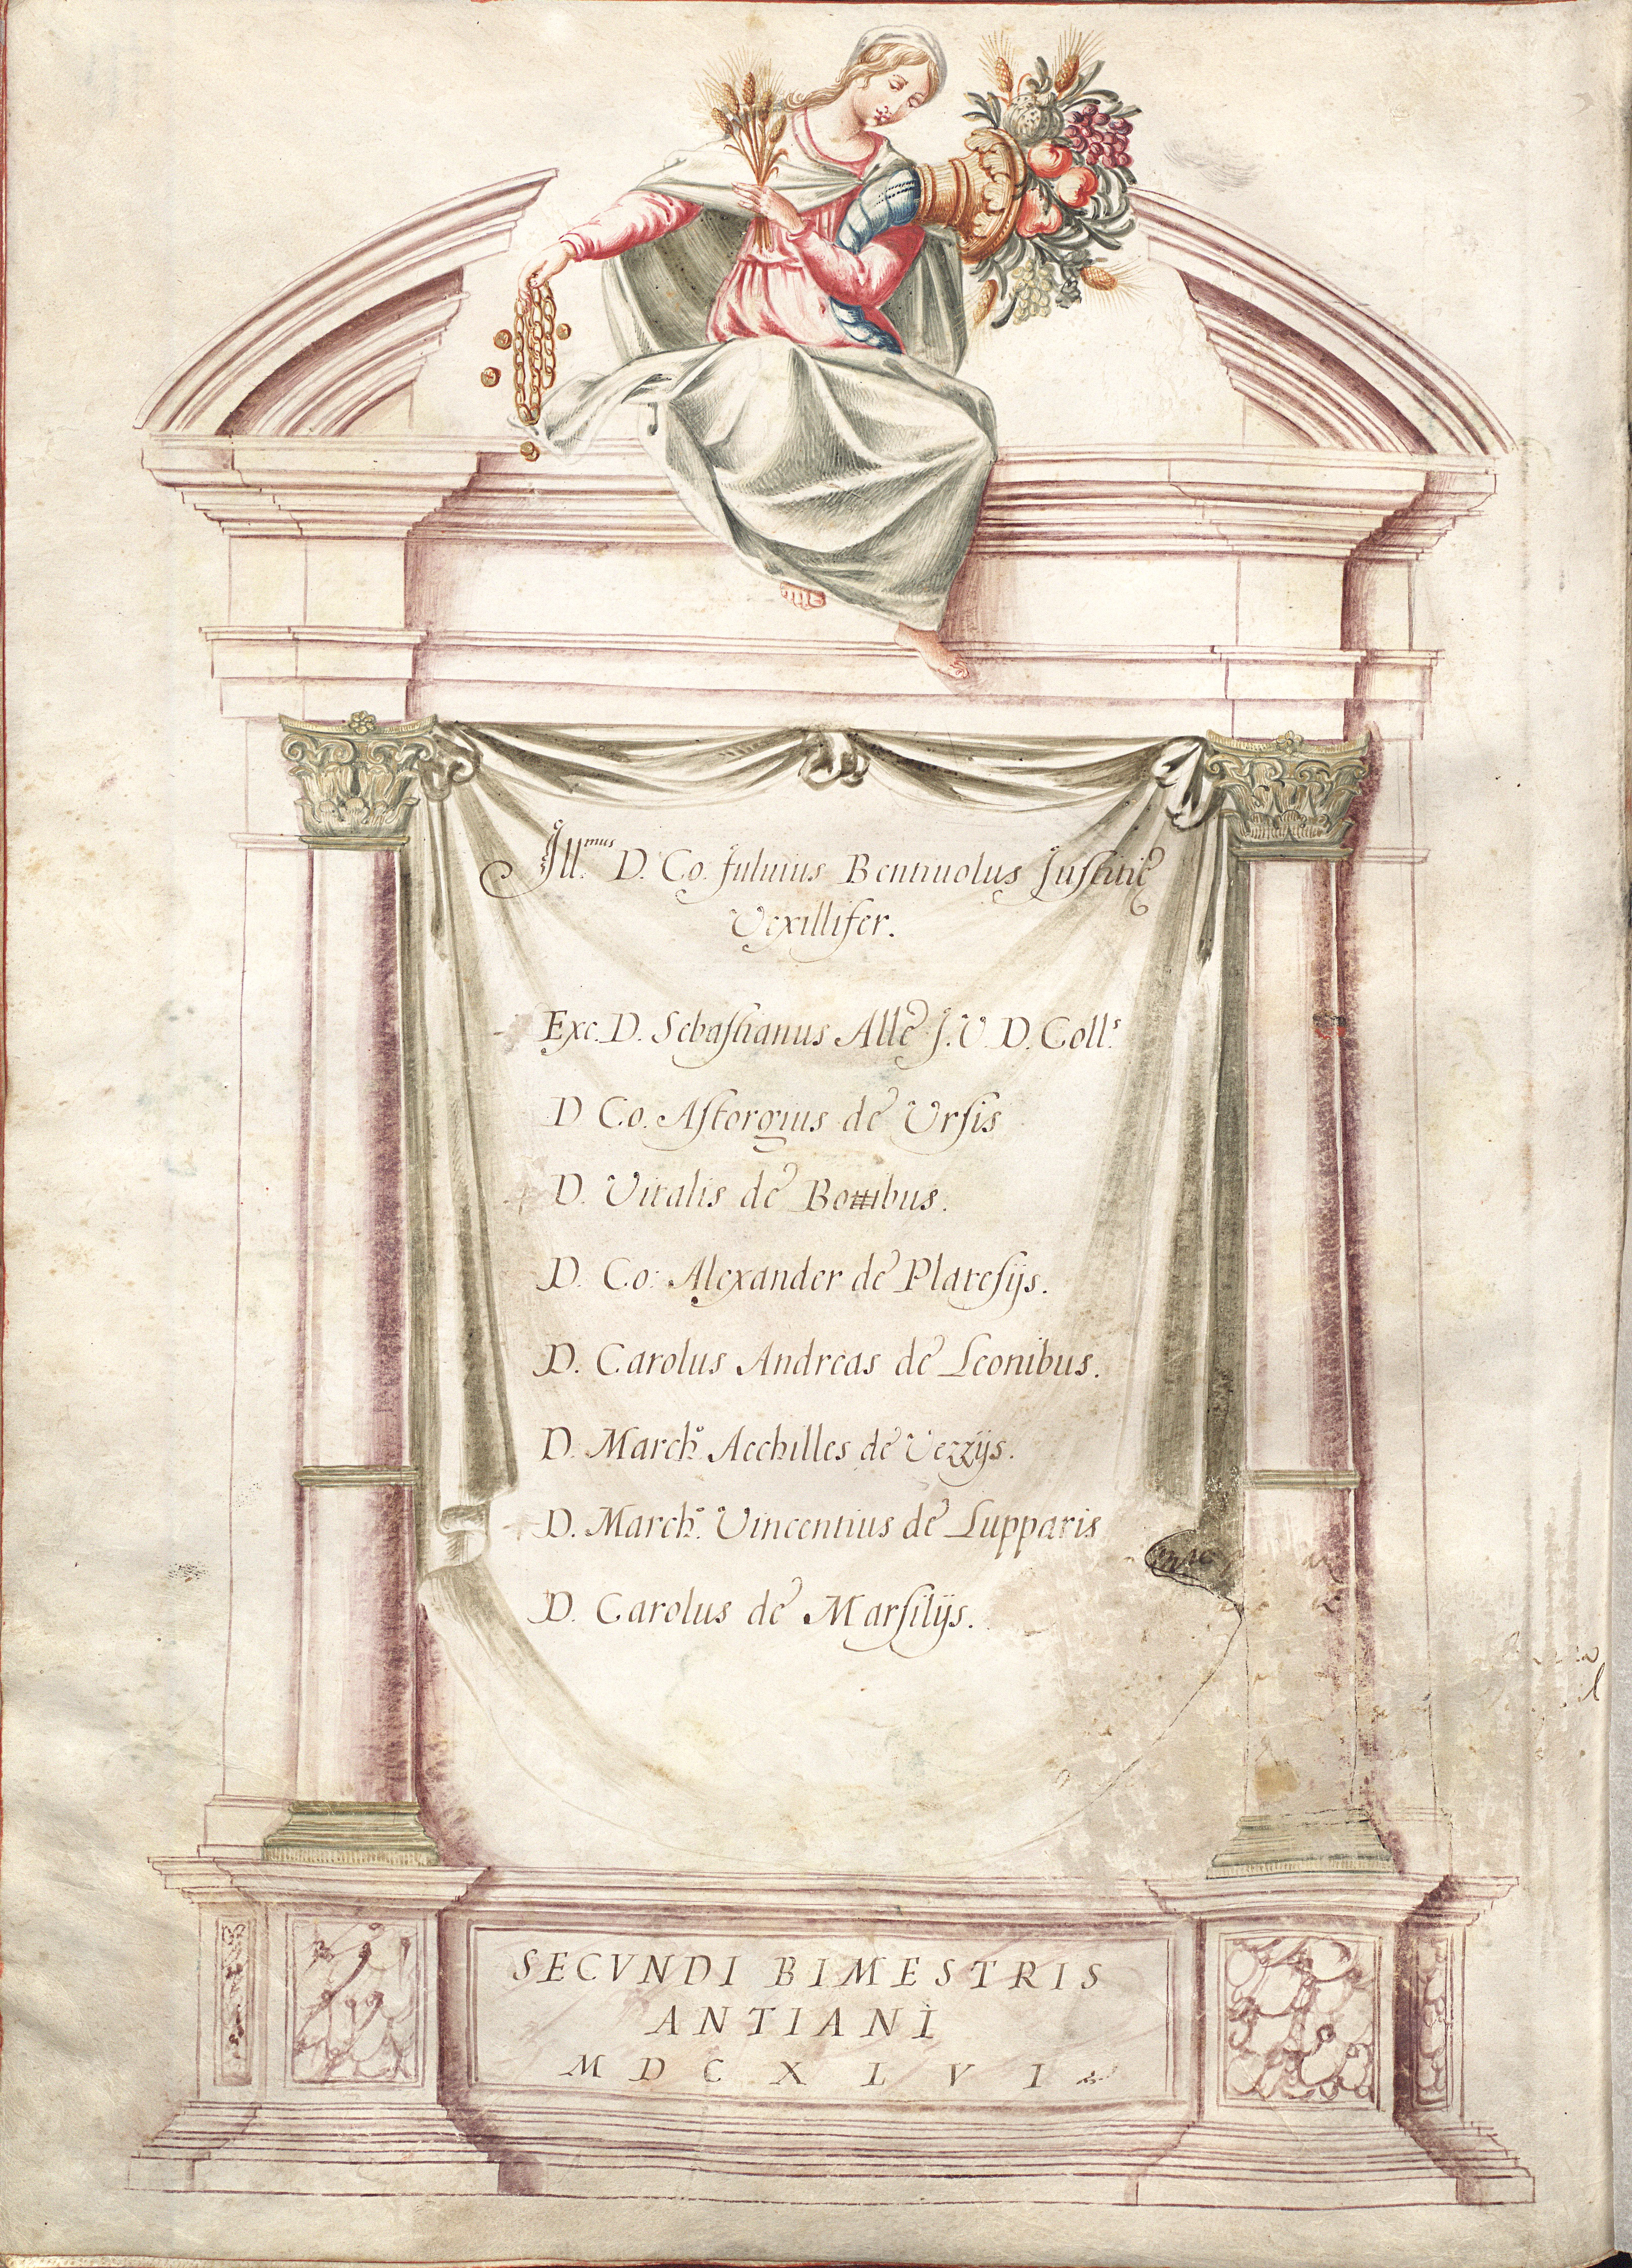 Ill.mus D. Co. Fuluius Bentiuolus Justitię
Vexillifer.
Exc. D. Sebastianus Allè J. V. D. Coll.s
D Co. Astorgius de Ursis
D. Vitalis de Bombus.
D. Co: Alexander de Platesijs.
D. Carolus Andreas de Leonibus.
D. March.o Acchilles de Vezzijs.
D. March.o Vincentius de Lupparis
D. Carolus de Marsilijs.
SECVNDI BIMESTRIS
ANTIANI
MDCXLVI